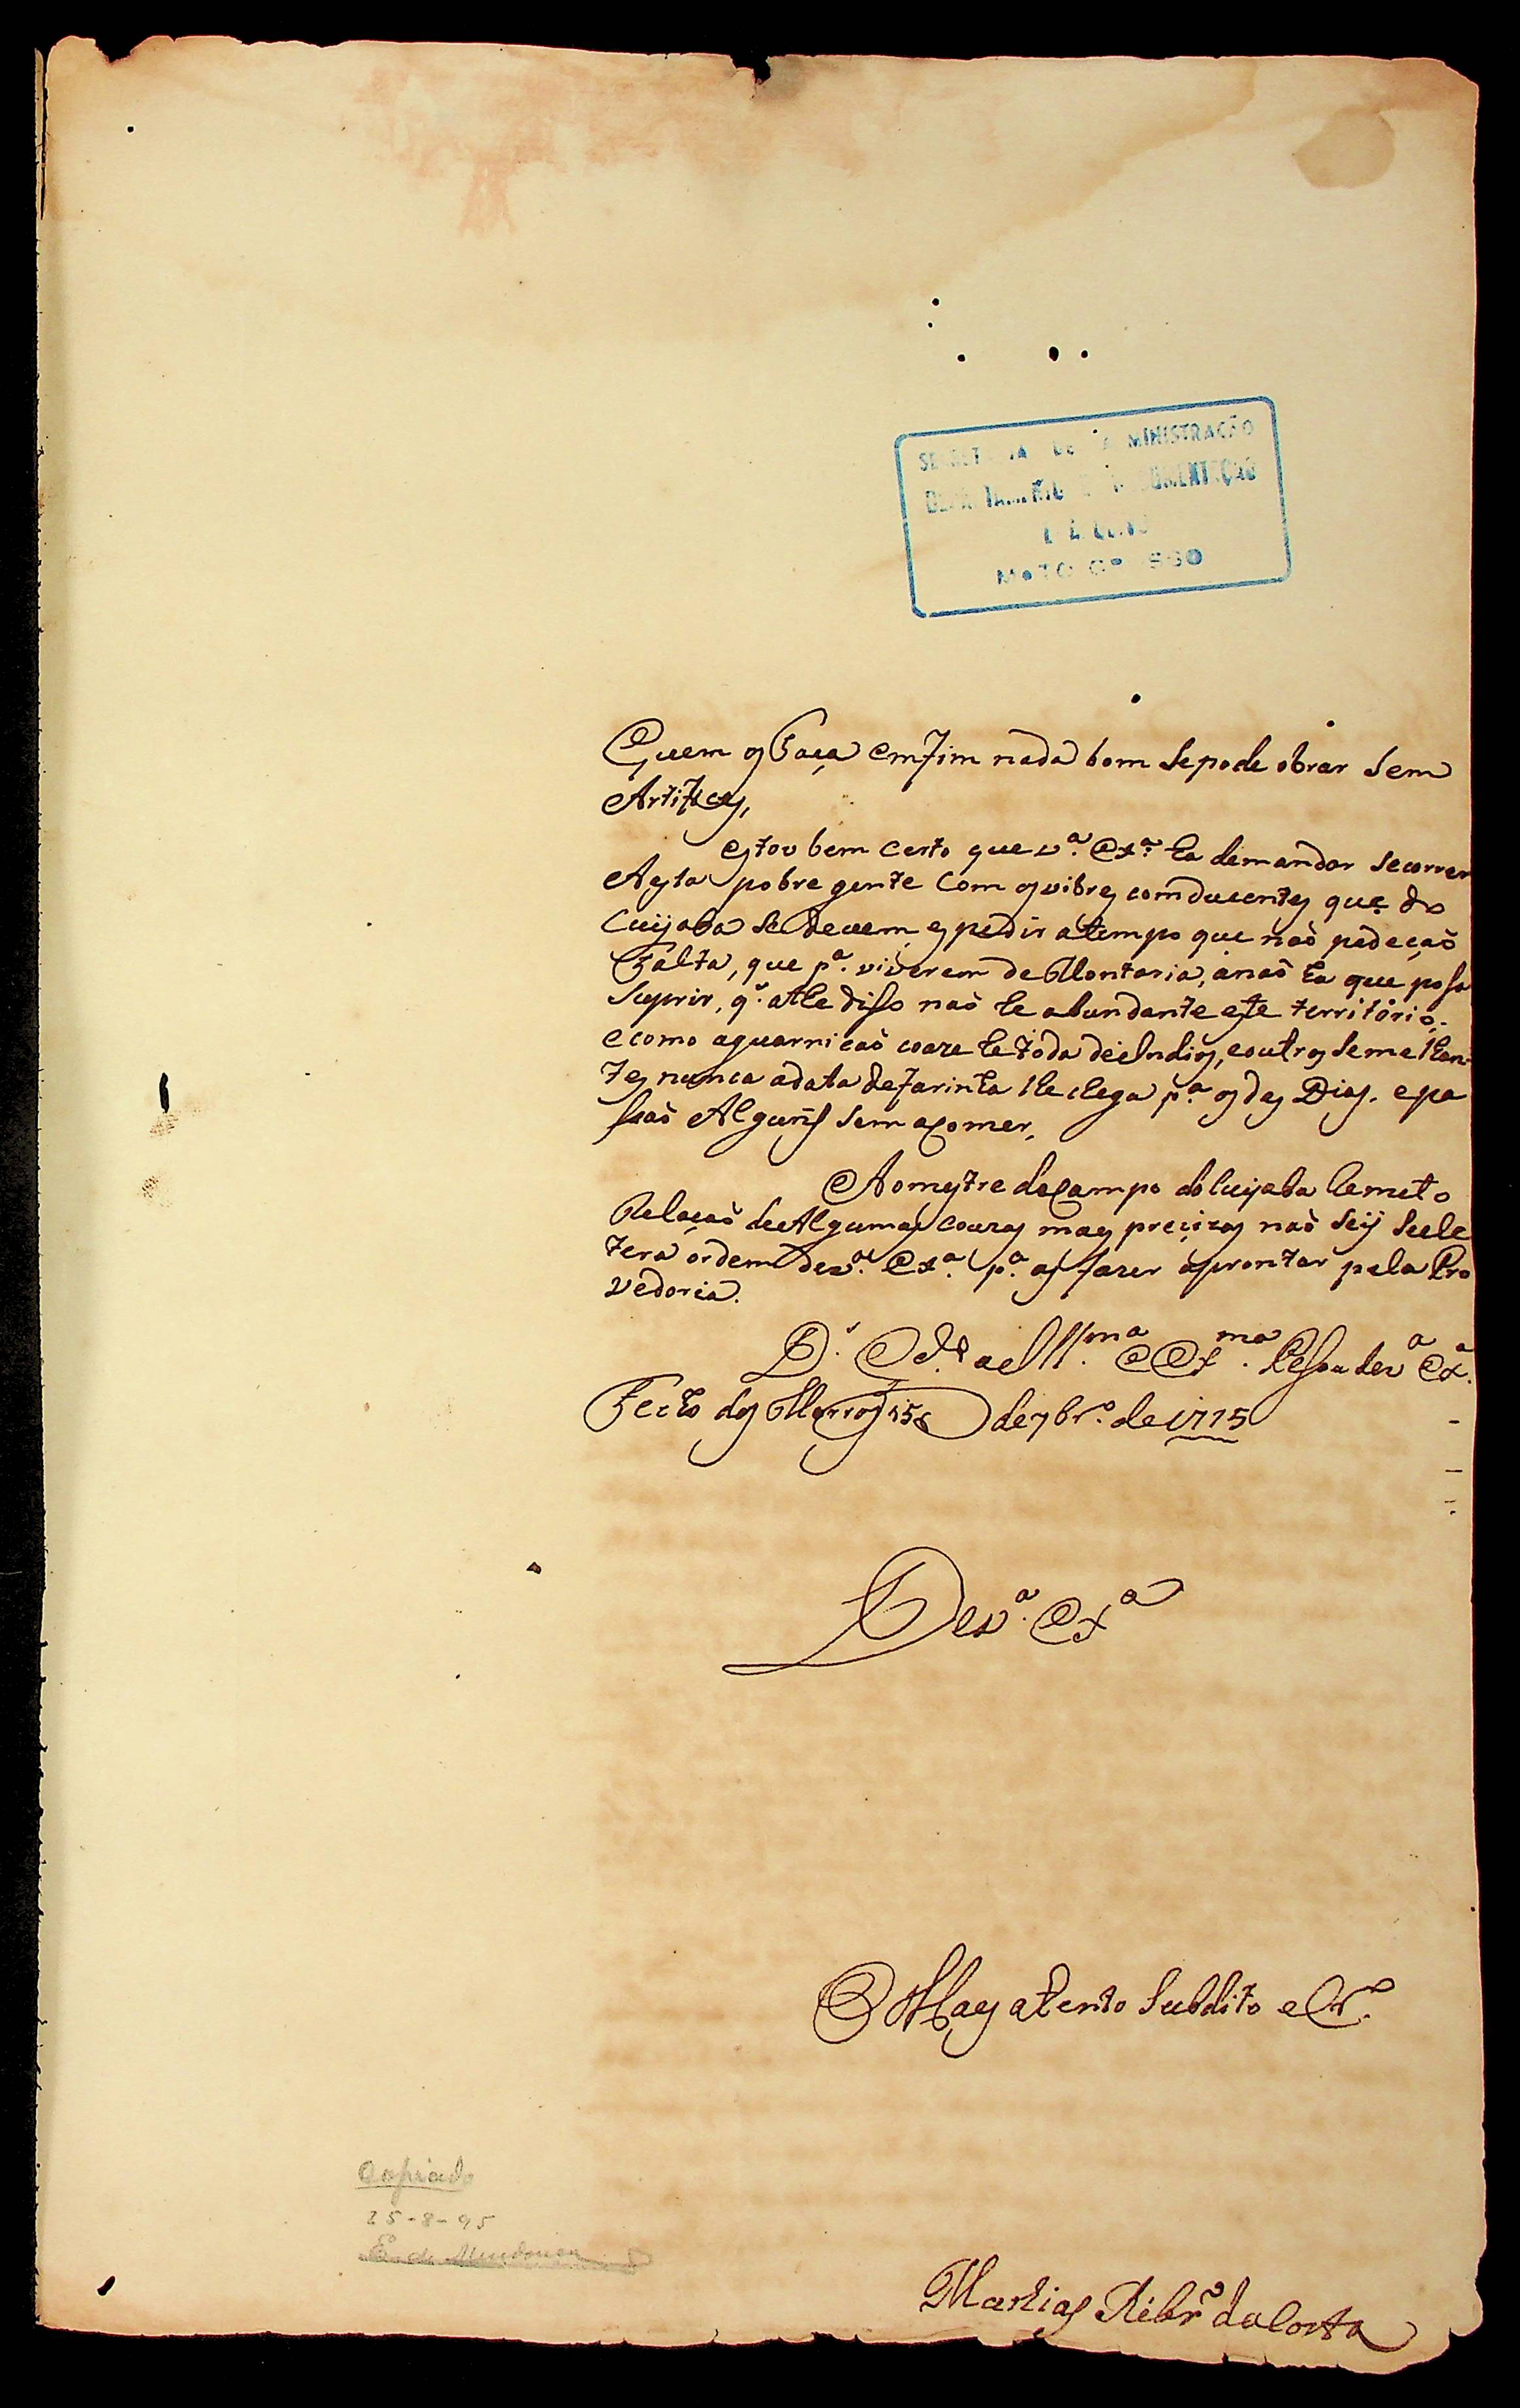 SECRETARIA DE ADMINISTRAÇÃO
DEPARTAMENTO DE DOCUMENTAÇÃO
MATO GROSSO
Quem os Faça emfim nada bom Sepode obrar Sem
Artifices,
estou bem certo que v.ª Ex.ª ha demandar Secorrer
Aesta pobre gente Com os vibres comducentes que do
Cuijaba Se devem espedir atempo que naõ padeçaõ
Falta, que p.ª viverem de Montaria, anaõ ha que posa
Suprir, q.' athe disso naõ he abundante este território.
e como aguarnicaõ coaze he toda deindios, eoutros Semelhan-
tes nunca adata defarinha lhe chega p.ª os des Dias. epa
ssaõ Alguñs Sem acomer,
Aomestre deCampo doCuijaba Remeto
Relaçaõ deAlgumas couzas mais precizas naõ Seij Seele
tera ordem dev.ª Ex.ª p.ª as fazer aprontar pela Pro
vedoria.
D.s G.de aell.ma e Ex.ma Pesoa dev.ª Ex.ª
Fecho dos Morros 15 de 7br.º de 1775
Dev.ª Ex.ª
O Mais atento Subdito e Cr.º
Mathias Ribr.º daCosta
Copiado
25-8-95
E. de Mendonça